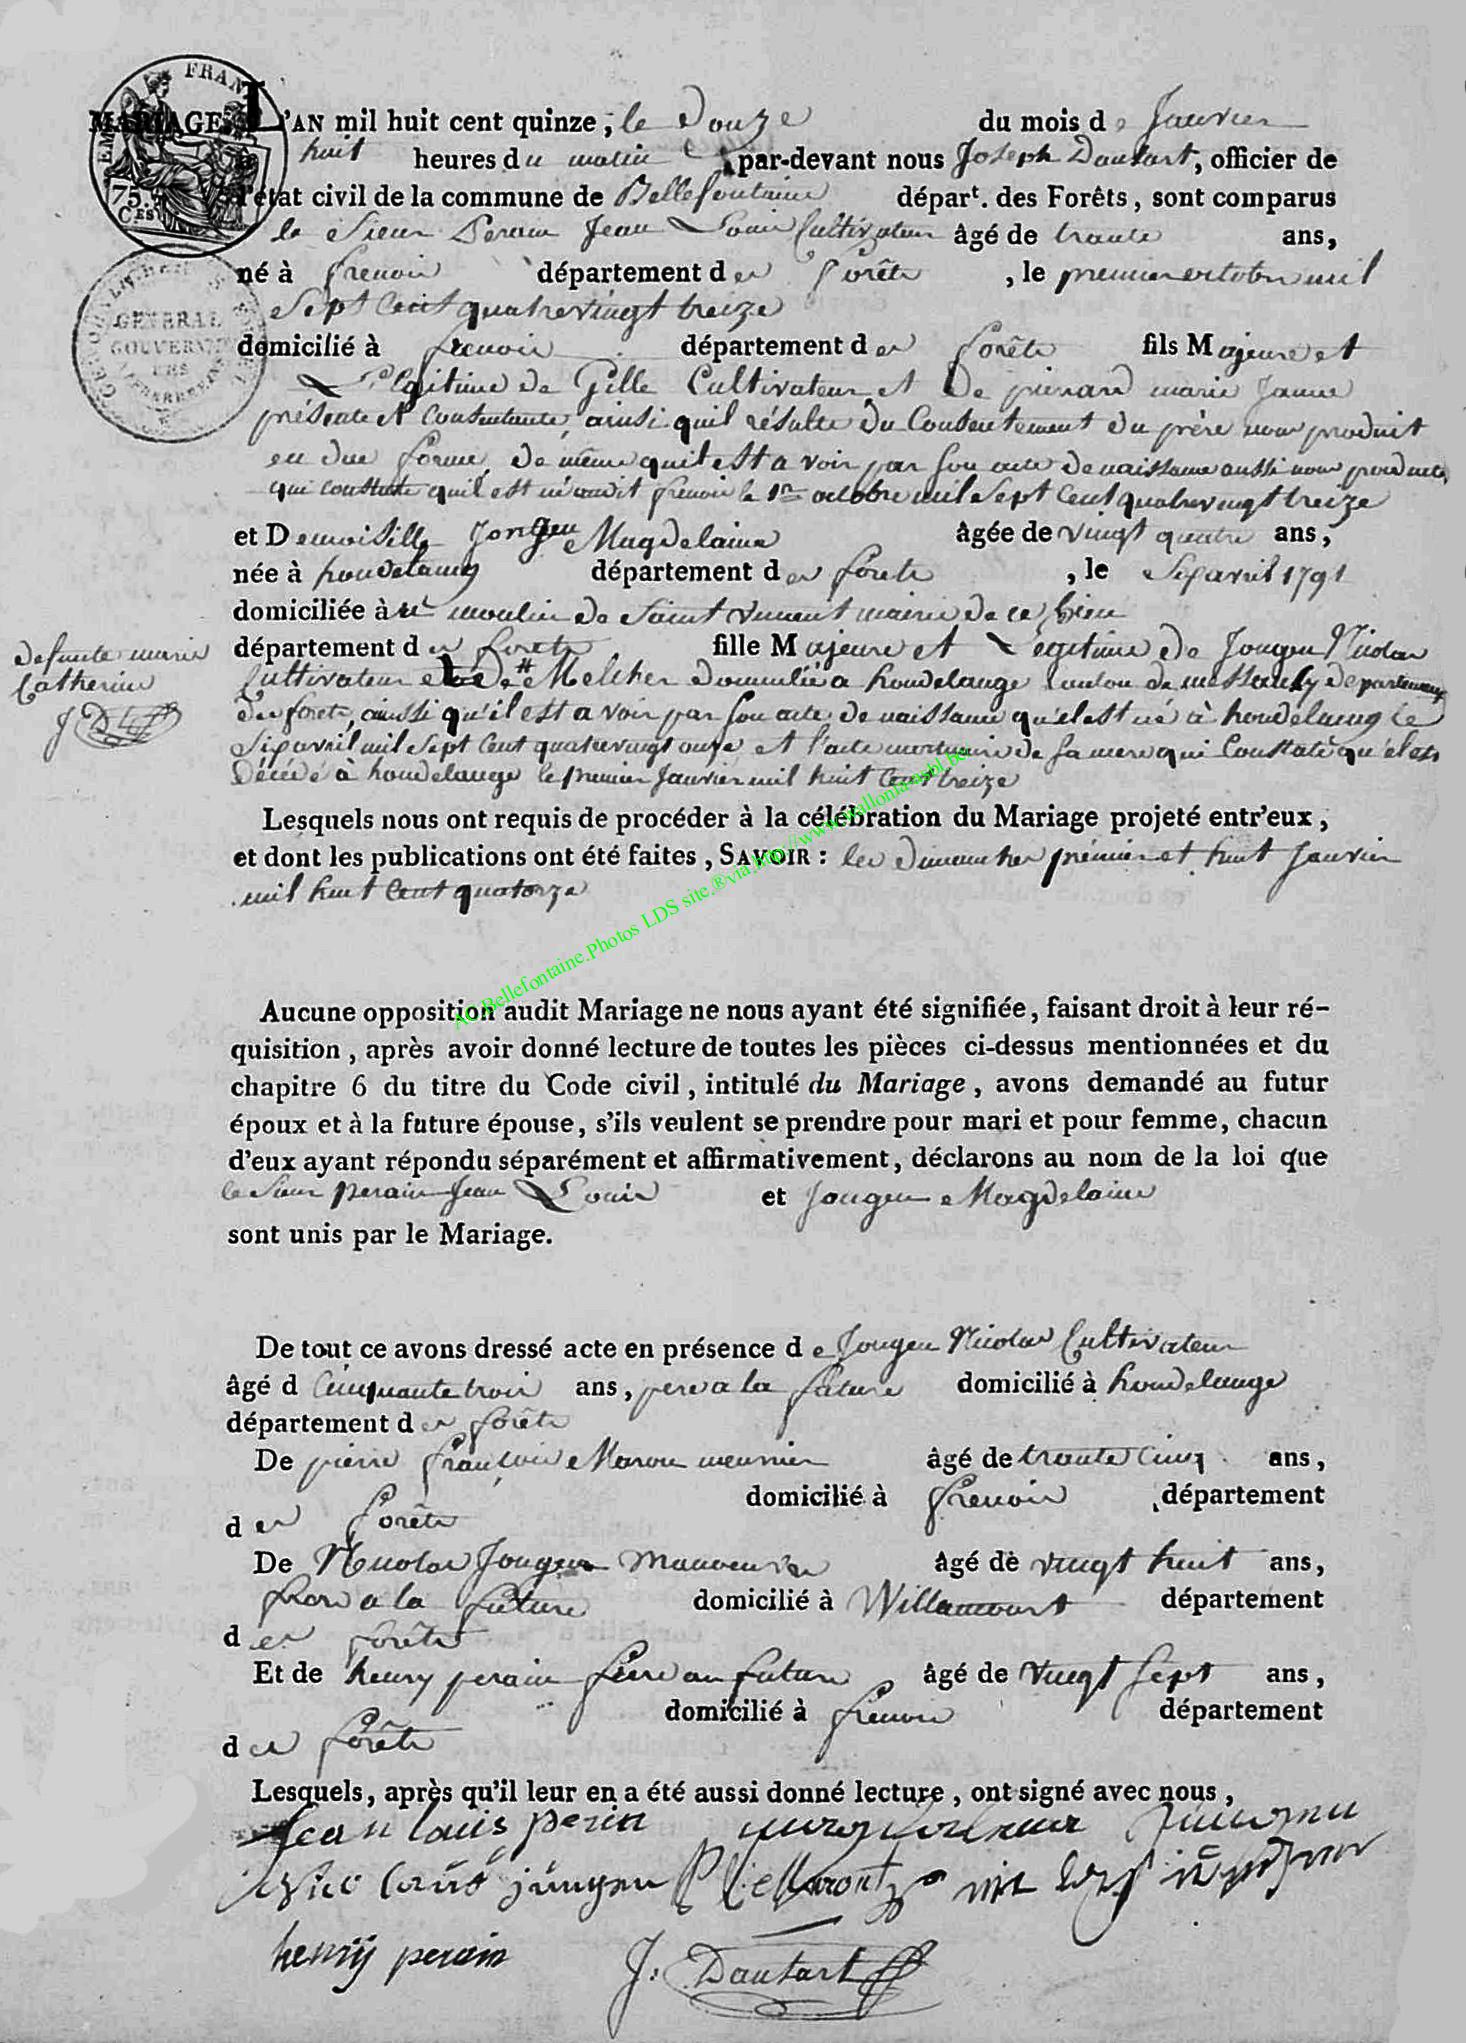 EMP FRAN
75. CES
GÉNÉRAL
GOUVERN
MARIAGE L'AN mil huit cent quinze, le Douze du mois de Janvier
huit heures du matin par-devant nous Joseph Dautart, officier de
l'état civil de la commune de Bellefontaine départ. des Forêts, sont comparus
le Sieur Perain Jean Louis Cultivateur âgé de trante ans,
né à frenois département des Forêts, le premier octobre mil
Sept Cent quatrevingt treize
domicilié à frenois département des forêts fils Majeure et
Legitime de Gille Cultivateur et De pierrard marie Janne
présente et Consentante, ainsi quil résulte du Consentement du prère nous produit
en due forme, de même quil est a voir par son acte de naissance aussi nous produite
qui constate quil est né audit frenois le 1er octobre mil Sept Cent quatrevingt treize
et Demoiselle Jongen Magdelaine âgée de vingt quatre ans,
née à houdelang département des forêts, le Six avril 1791
domiciliée à moulin de Saint vincent mairie de ce lieu
département des forets fille Majeure et Legitime de Jongen Nicolas
defunte marie
Catherine
JD
Cultivateur et de # Melcher Domicilié a houdelange Canton de messancy departement
des forets, ainsi qu'il est a voir par son acte de naissance qu'el est né à houdelang le
Six avril mil sept Cent quatrevingt onze et l'acte mortuaire de sa mere qui Constate qu'el est
Décédé à houdelange le premier Janvier mil huit Cent treize
Lesquels nous ont requis de procéder à la célébration du Mariage projeté entr'eux,
et dont les publications ont été faites, SAVOIR : les dimanches prémier et huit Janvier
mil huit Cent quatorze
AC.Bellefontaine.Photos LDS site.®via.http://www.wallonia-asbl.be
Aucune opposition audit Mariage ne nous ayant été signifiée, faisant droit à leur ré-
quisition, après avoir donné lecture de toutes les pièces ci-dessus mentionnées et du
chapitre 6 du titre du Code civil, intitulé du Mariage, avons demandé au futur
époux et à la future épouse, s'ils veulent se prendre pour mari et pour femme, chacun
d'eux ayant répondu séparément et affirmativement, déclarons au nom de la loi que
le Sieur perain Jean Louis et Jongen Magdelaine
sont unis par le Mariage.
De tout ce avons dressé acte en présence de Jongen Nicolas Cultivateur
âgé d Cinquante trois ans, pere a la future domicilié à houdelange
département des forêts
De pierre françois Maron meunier âgé de trante Cinq ans,
domicilié à frenois département
des Forêts
De Nicolas Jongen âgé de vingt huit ans,
frere a la future domicilié à Willancourt département
des forêts
Et de henry perain frere au future âgé de vingt sept ans,
domicilié à frenois département
des forêts
Lesquels, après qu'il leur en a été aussi donné lecture, ont signé avec nous,
Jean louis perin
jungen
henrÿ perain J. Dautart